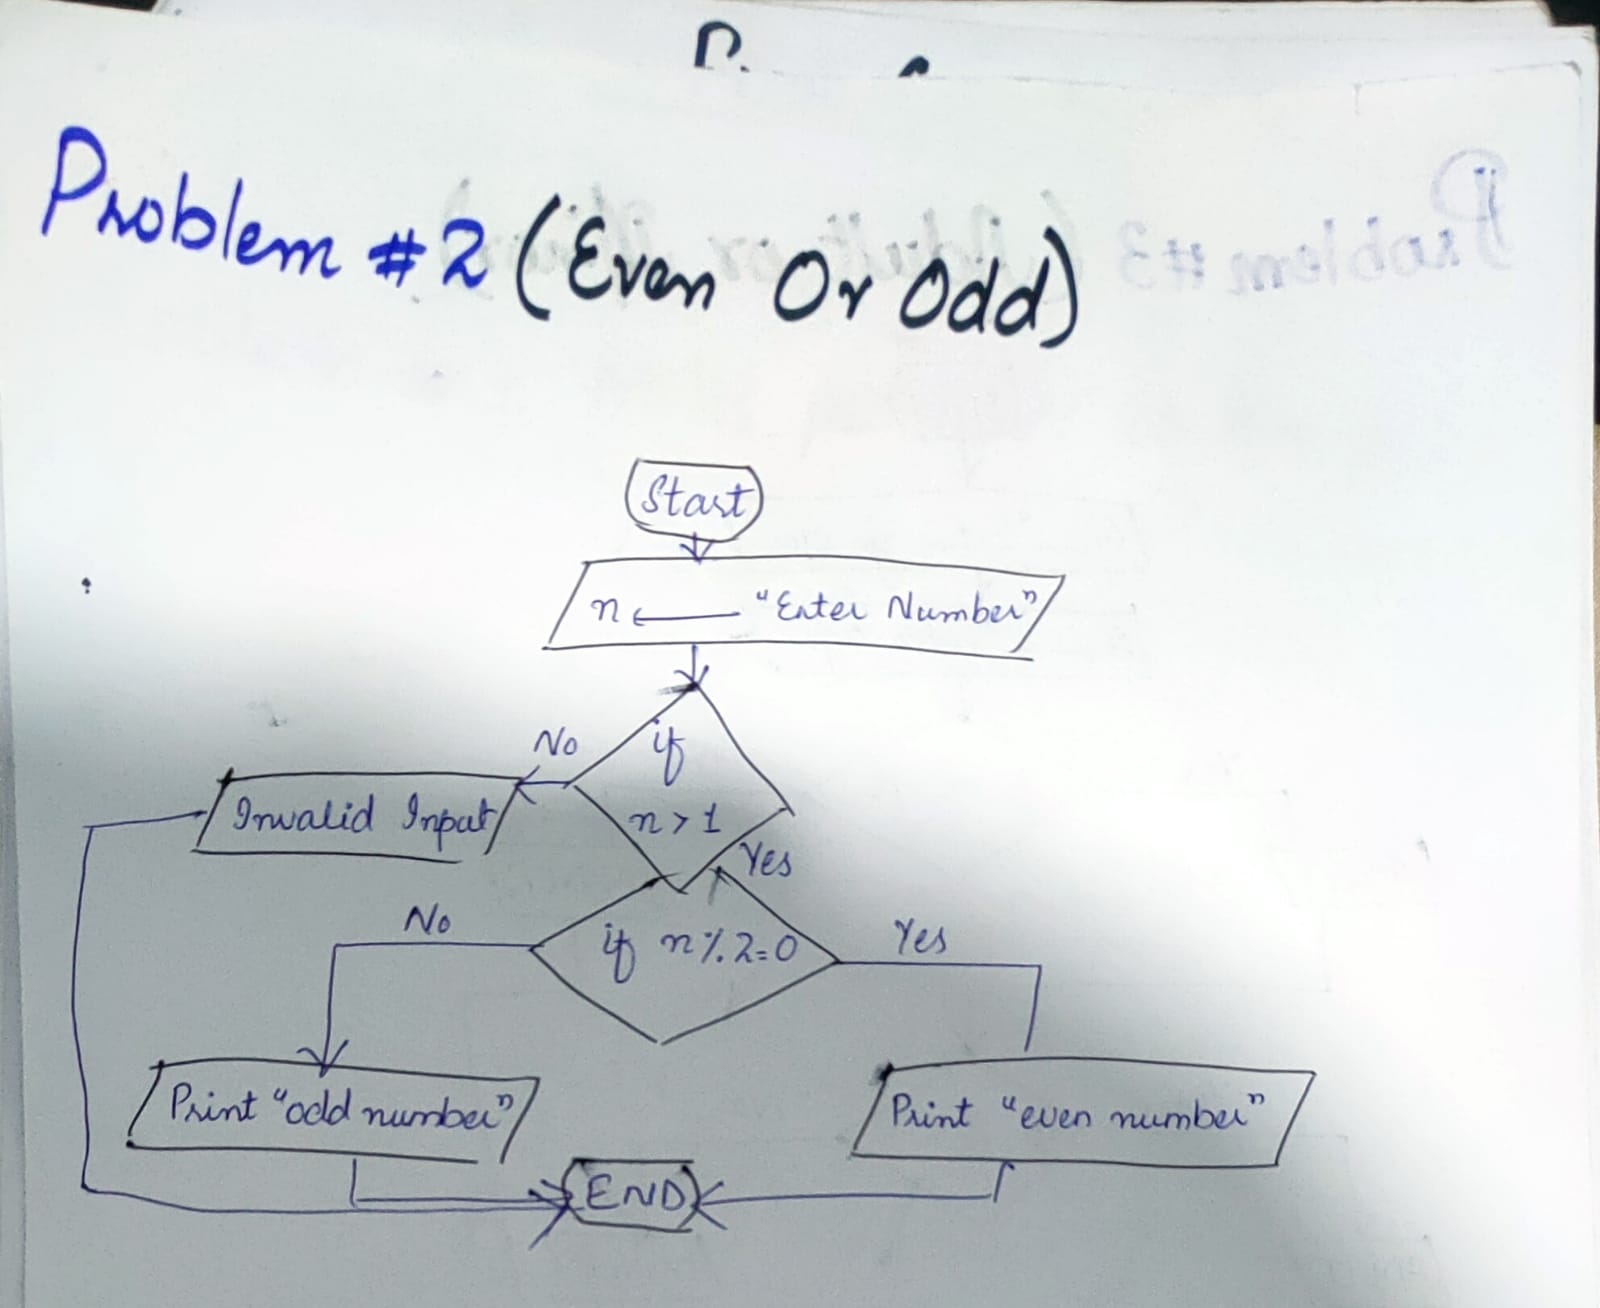 Problem #2 (Even Or Odd)
Start
n ← "Enter Number"
if
n > 1
No
Invalid Input
Yes
if n % 2 = 0
No
Yes
Print "odd number"
Print "even number"
END